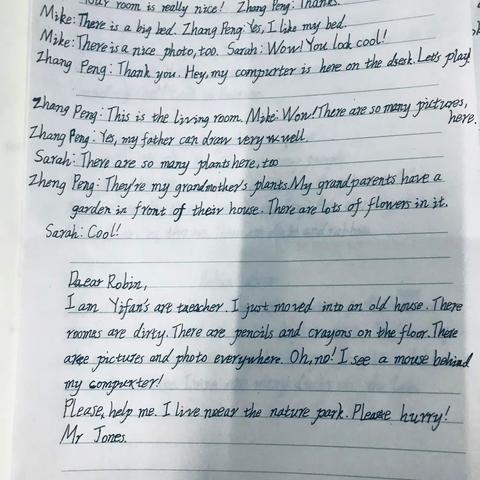 Your room is really nice! Zhang Peng: Thanks.
Mike: There is a big bed. Zhang Peng: Yes, I like my bed.
Mike: There is a nice photo, too. Sarah: Wow! You look cool!
Zhang Peng: Thank you. Hey, my compurter is here on the desk. Let's play!
Zhang Peng: This is the living room. Mike: Wow! There are so many pictures,
here.
Zhang Peng: Yes, my father can draw very well.
Sarah: There are so many plants here, too
Zheng Peng: They're my grandmother's plants. My grandparents have a
garden in front of their house. There are lots of flowers in it.
Sarah: Cool!
Dear Robin,
I am Yifan's art teacher. I just moved into an old house. There
rooms are dirty. There are pencils and crayons on the floor. There
are pictures and photo everywhere. Oh, no! I see a mouse behind
my computer!
Please, help me. I live near the nature park. Please hurry!
Mr Jones.